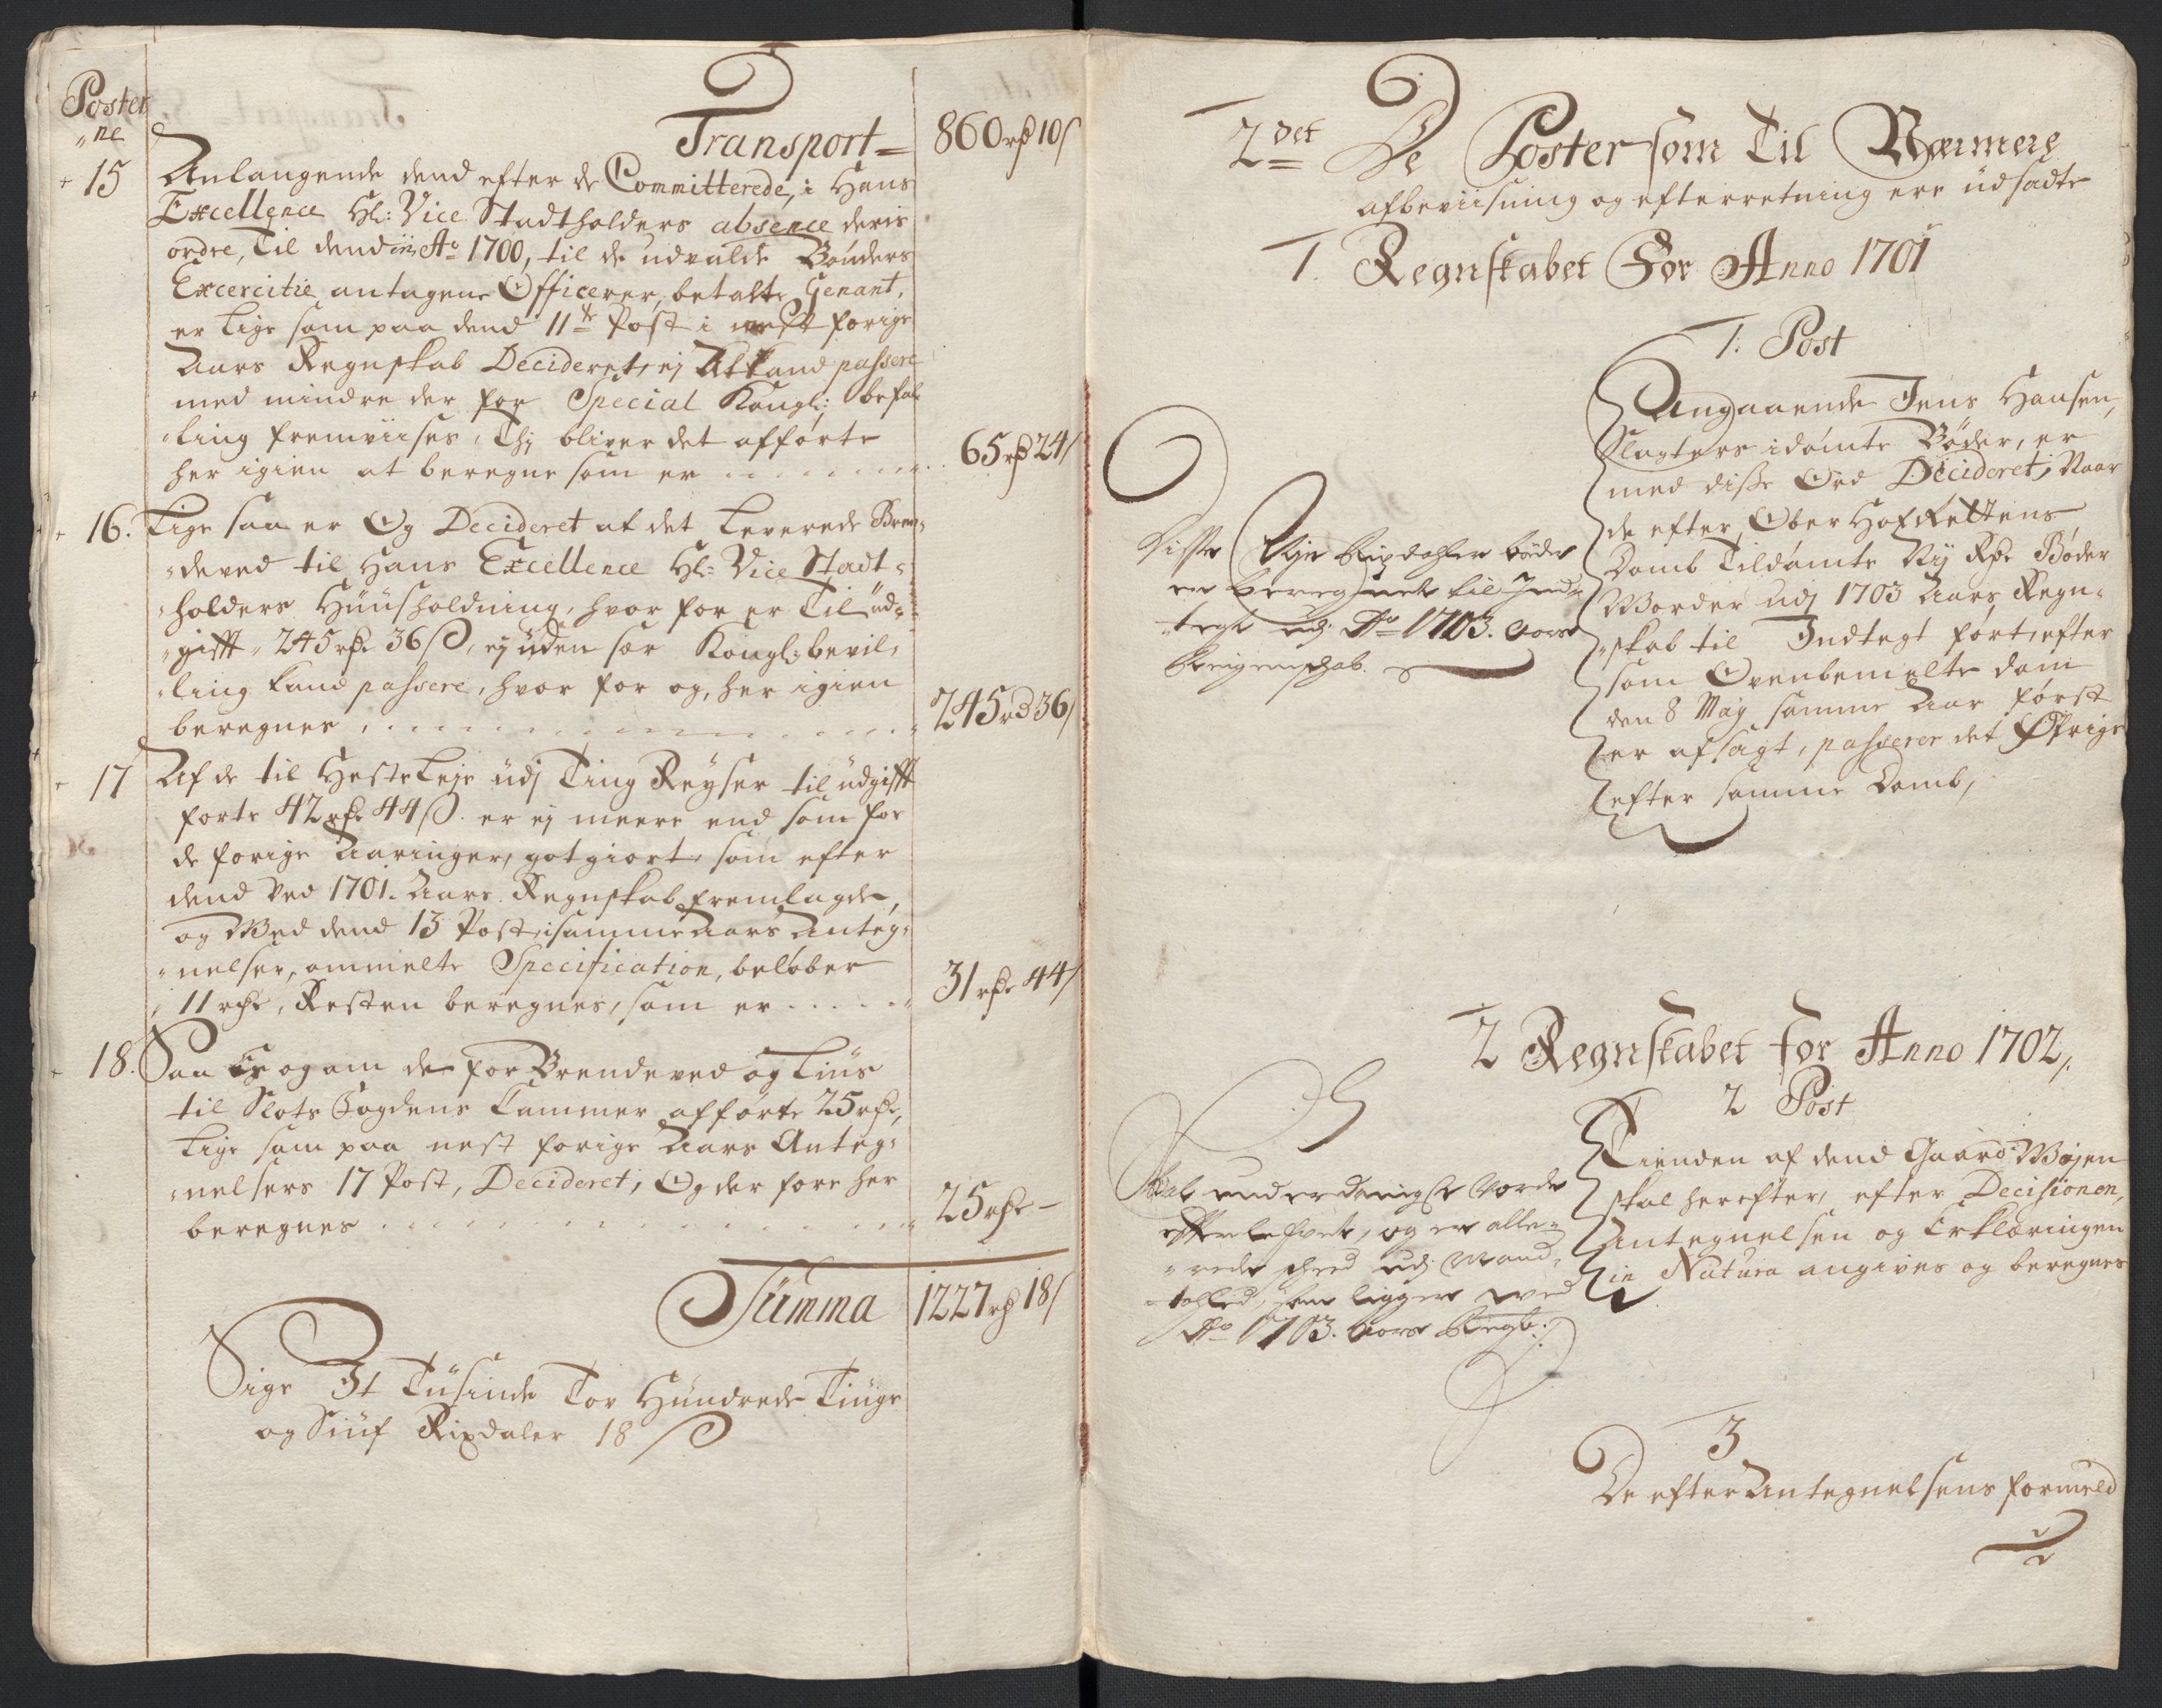 Poster
"ne
Transport= 860 rdr 10 s
+ 15 Anlangende dend efter de Committerede, i Hans
Excellence Hl: Vice Stadtholders absence deris
ordre, Til dend in Ao 1700, til de udvalde Bønders
Excercitie antagene Officerer, betalte Genant,
er lige som paa dend 11te Post i nest forige
Aars Regnskab Decideret, ej At kand passere
med mindre der for Special Kongl: befal-
"ling fremviises, Thj bliver det afførte
her igien at beregne som er . . . . . . . 65 rdr 24 s
+ 16. Lige saa er Og Decideret at det leverede Bren-
"deved til Hans Excellence Hl: Vice Stadt-
"holders Huusholdning, hvor for er Til ud-
"gifft 245 rdr 36 s, ej uden sær Kongl: bevil-
"ling kand passere, hvor for og, her igien
beregnes . . . . . . . . . . 245 rd 36 s
+ 17 Af de til Heste Leje udj Ting Reyser til udgifft
førte 42 rdr 44 s. er ej meere end som for
de forige Aaringer, gotgiort, som efter
dend Ved 1701. Aars Regnskab fremlagde,
og Med dend 13 Post, i samme Aars Anteg-
"nelser, ommelte Specification, beløber
11 rdr, Resten beregnes, som er . . . . . 31 rdr 44 s
+ 18. Saa er og om de for Brendeved og Liius
til Slots Fogdens Cammer afførte 25 rdr,
lige som paa nest forige Aars Anteg-
"nelsers 17 Post, Decideret, Og der fore her
beregnes . . . . . . . . . . . 25 rdr -
Summa 1227 rdr 18 s
Sige Et Tusinde Toe Hundrede Tiuge
og Siuf Rixdaler 18 s
2det De Poster som Til Nærmere
afbeviisning og efterretning ere udsadte
1. Regnskabet For Anno 1701
1. Post
Angaaende Jens Hansen,
Slagters idømte Bøder, er
med disse Ord Decideret, Naar
de efter Ober Hof Rettens
Domb Tildømte Nij Rdr Bøder
Worder udj 1703 Aars Regn-
"skab til Indtegt ført, efter
som Ovenbemelte dom
den 8 Maj samme Aar først
er afsagt, passerer det Øfrige
efter samme Domb,
Disse Nije Rixdahler bøder
er beregnet til Ind-
"tegt udj Ao 1703. Aars
Reigenschab.
2 Regnskabet for Anno 1702,
2 Post
Tienden af dend Gaard Mojen
skal herefter, efter Decisionen,
Antegnelsen og Erklæringen
in Natura angives og beregnes
Skal underdanigst vorde
efterlefvet, og er alle-
"rede skeed udj Mand-
"tahled, som ligger ved
Ao 1703. Aars Regsk:
3
De efter Antegnelsens formeld